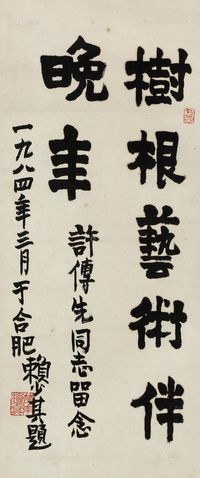 樹根藝術伴
晚年
許傳先同志留念
一九八四年三月于合肥賴少其題